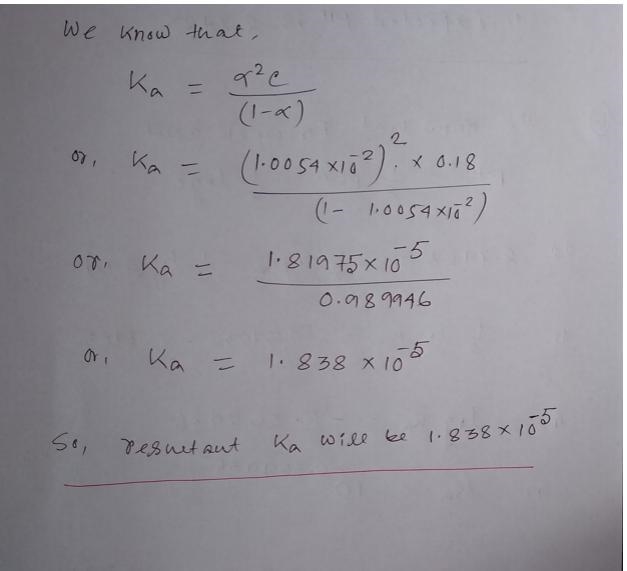 We know that,
Ka = α²c / (1-α)
or, Ka = (1.0054 × 10⁻²)². × 0.18 / (1 - 1.0054 × 10⁻²)
or, Ka = 1.81975 × 10⁻⁵ / 0.989946
or, Ka = 1.838 × 10⁻⁵
So, resultant Ka will be 1.838 × 10⁻⁵